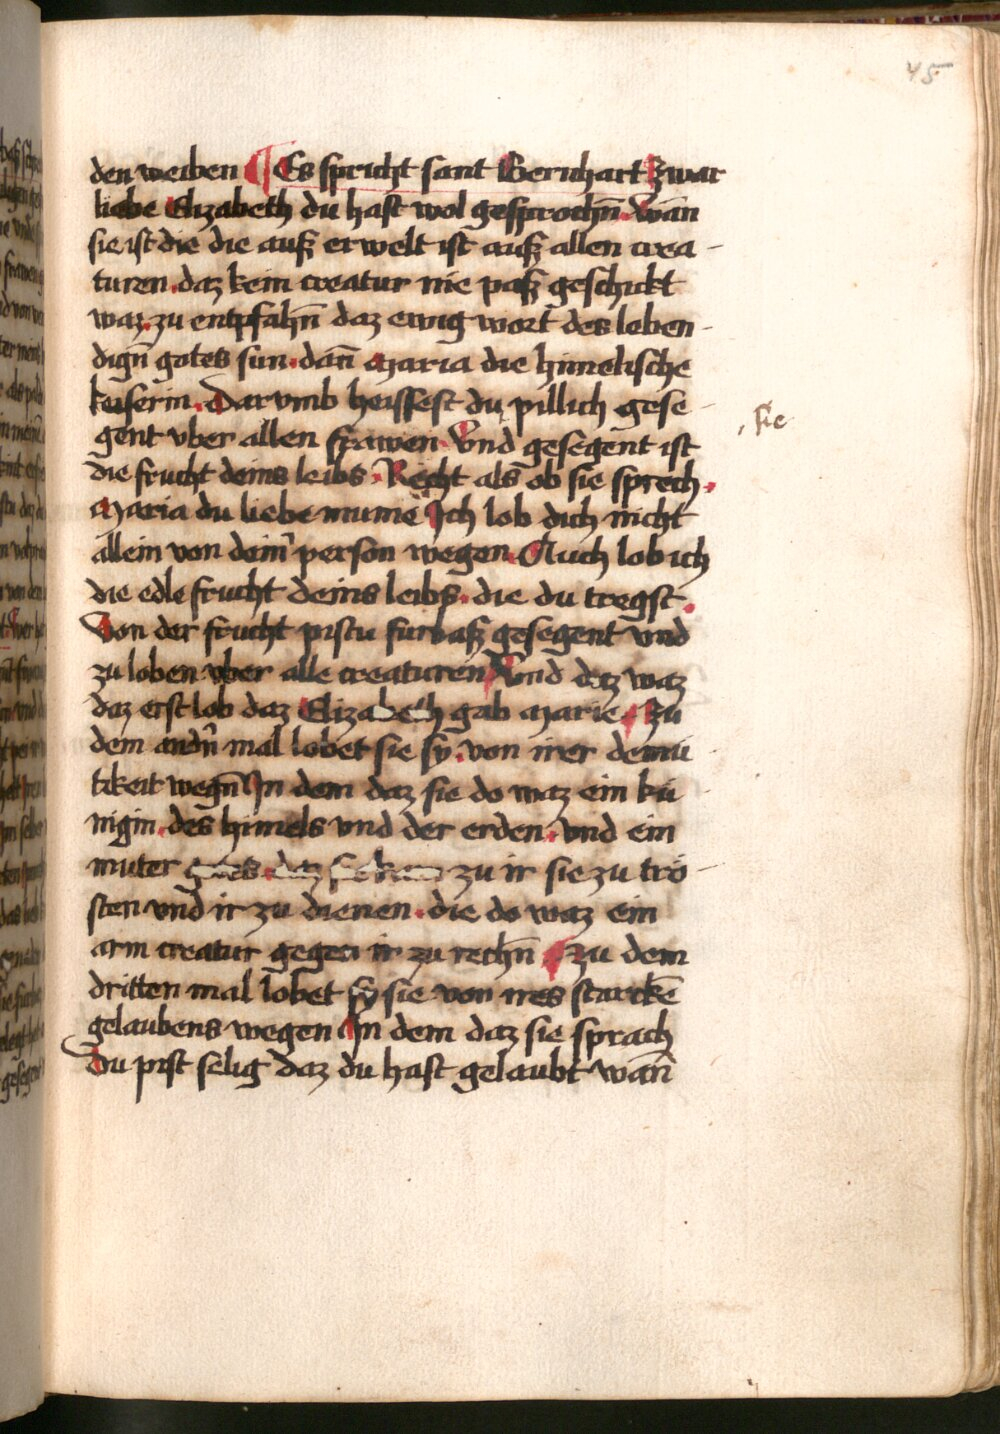 45
den weiben ¶ Es spricht sant Bernhart zwar
liebe Elizabeth du hast wol gesprochn̄. Wan̄
sie ist die die auß erwelt ist auß allen crea-
turen. daz kein creatur nie paß geschickt
waz. zu entpfahn̄ daz ewig wort des leben-
dign̄ gotes sun. dan̄ Maria die himelische
keiserin. Darvmb heissest du pillich gese-
, sie
gent vber allen frawen. Vnd gesegent ist
die frucht deins leibs. Recht als ob sie sprech.
Maria du liebe mume Ich lob dich nicht
allein von deinˀ person wegen. Auch lob ich
die edle frucht deins leibs. die du tregst.
Von der frucht pistu furbaß gesegent vnd
zu loben vber alle creaturen Vnd daz waz
daz erst lob daz Elizabeth gab Marie. Zu
dem andn̄ mal lobet sie sy. von irer demü-
tikeit wegn̄ In dem daz sie do waz ein kü-
nigin. des himels vnd der erden. vnd ein
muter gotes. daz sie kam zu ir sie zu trö-
sten vnd ir zu dienen. die do waz ein
arm creatur gegen ir zu rechn̄ Zu dem
dritten mal lobet sy sie von ires starckē
gelaubens wegen In dem daz sie sprach
Du pist selig daz du hast gelaubt wan̄